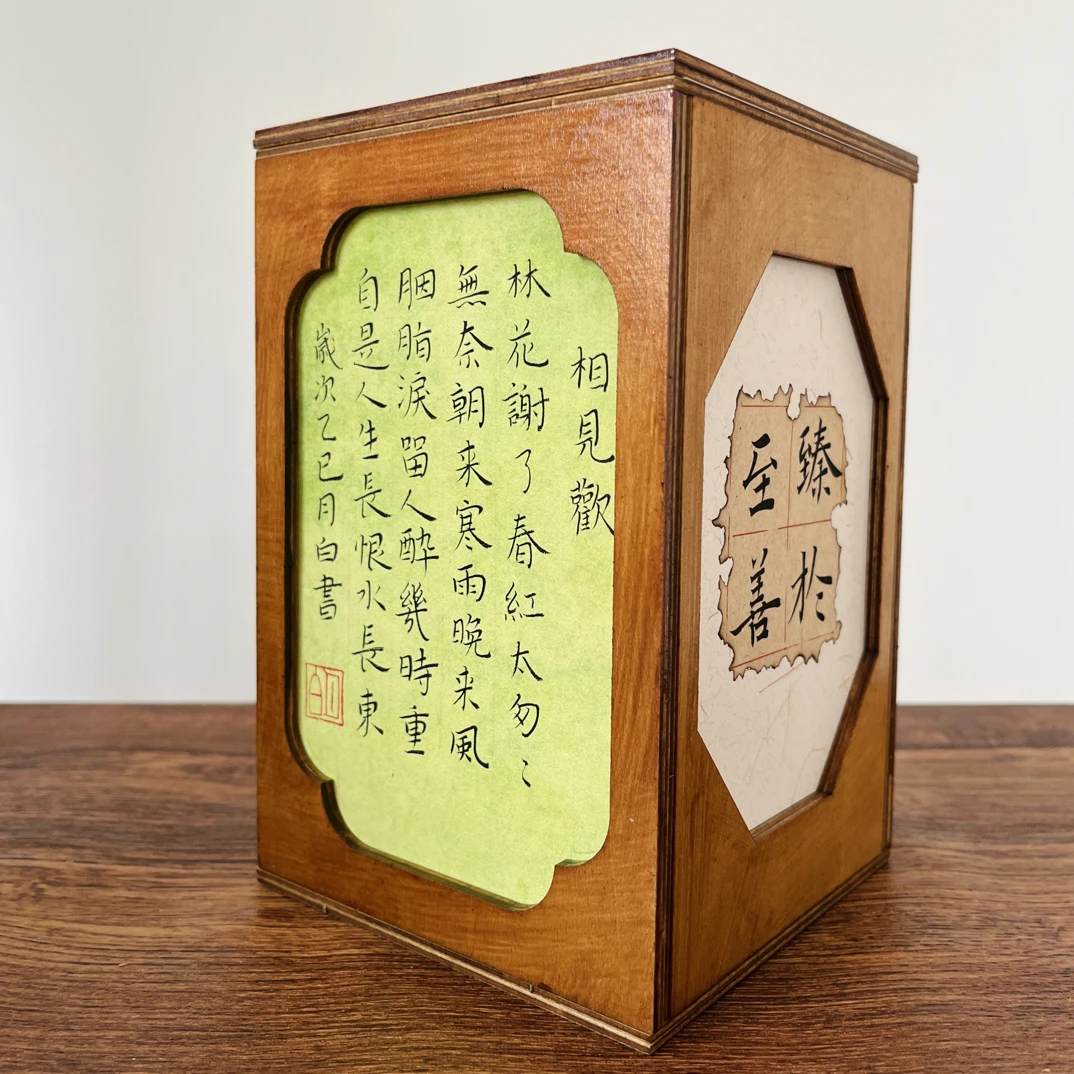 相見歡
林花謝了春紅太匆〻
無奈朝来寒雨晚来風
胭脂淚留人醉幾時重
自是人生長恨水長東
歲次乙巳月白書
月白
臻於
至善